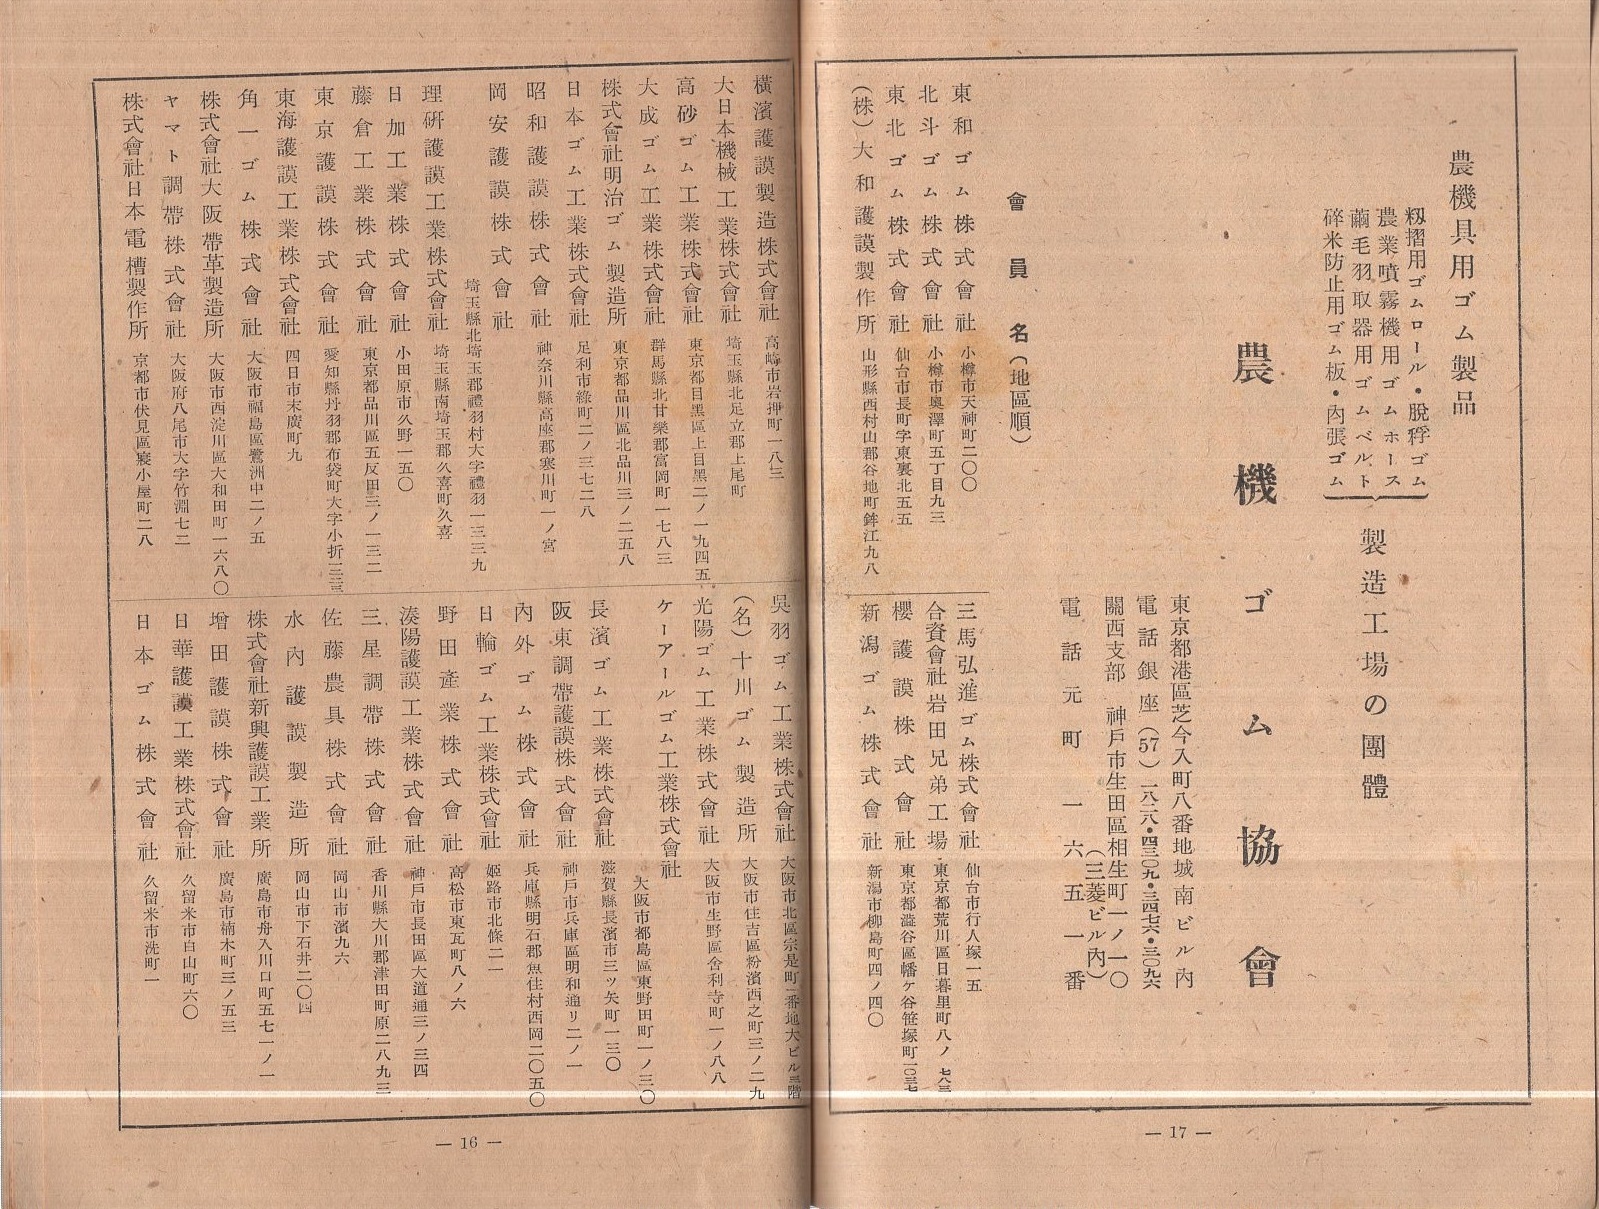 農機具用ゴム製品
籾摺用ゴムロール・脫稃ゴム
農業噴霧機用ゴムホース
繭毛羽取器用ゴムベルト
碎米防止用ゴム板・內張ゴム
製造工場の團體
農機ゴム協會
東京都港區芝今入町八番地城南ビル內
電話銀座(57)一八二八・四三〇九・三四七六・三〇九六
關西支部 神戶市生田區相生町一ノ一〇
(三菱ビル內)
電話元町一六五一番
會員名(地區順)
東和ゴム株式會社 小樽市天神町二〇〇
北斗ゴム株式會社 小樽市奧澤町五丁目九三
東北ゴム株式會社 仙台市長町字東裏北五五
(株)大和護謨製作所 山形縣西村山郡谷地町鉾江九八
三馬弘進ゴム株式會社 仙台市行人塚一五
合資會社岩田兄弟工場 東京都荒川區日暮里町八ノ七八三
櫻護謨株式會社 東京都澁谷區幡ケ谷笹塚町一〇三七
新潟ゴム株式會社 新潟市柳島町四ノ四〇
— 17 —
橫濱護謨製造株式會社 高崎市岩押町一八三
大日本機械工業株式會社 埼玉縣北足立郡上尾町
高砂ゴム工業株式會社 東京都目黑區上目黑二ノ一九四五
大成ゴム工業株式會社 群馬縣北甘樂郡富岡町一七八三
株式會社明治ゴム製造所 東京都品川區北品川三ノ二五八
日本ゴム工業株式會社 足利市綠町二ノ三七二八
昭和護謨株式會社 神奈川縣高座郡寒川町一ノ宮
岡安護謨株式會社 埼玉縣北埼玉郡禮羽村大字禮羽一三三九
理硏護謨工業株式會社 埼玉縣南埼玉郡久喜町久喜
日加工業株式會社 小田原市久野一五〇
藤倉工業株式會社 東京都品川區五反田三ノ一三二
東京護謨株式會社 愛知縣丹羽郡布袋町大字小折一三三
東海護謨工業株式會社 四日市末廣町九
角一ゴム株式會社 大阪市福島區鷺洲中二ノ五
株式會社大阪帶革製造所 大阪市西淀川區大和田町一六八〇
ヤマト調帶株式會社 大阪府八尾市大字竹淵七二
株式會社日本電槽製作所 京都市伏見區寢小屋町二八
吳羽ゴム工業株式會社 大阪市北區宗是町一番地大ビル三階
(名)十川ゴム製造所 大阪市住吉區粉濱西之町三ノ二九
光陽ゴム工業株式會社 大阪市生野區舍利寺町一ノ八八
ケーアールゴム工業株式會社 大阪市都島區東野田町一ノ三〇
長濱ゴム工業株式會社 滋賀縣長濱市三ツ矢町一三〇
阪東調帶護謨株式會社 神戶市兵庫區明和通リ二ノ一
內外ゴム株式會社 兵庫縣明石郡魚住村西岡二〇五〇
日輪ゴム工業株式會社 姬路市北條二一
野田產業株式會社 高松市東瓦町八ノ六
湊陽護謨工業株式會社 神戶市長田區大道通三ノ三四
三星調帶株式會社 香川縣大川郡津田町原二八九三
佐藤農具株式會社 岡山市濱九六
水內護謨製造所 岡山市下石井二〇四
株式會社新興護謨工業所 廣島市舟入川口町五七一ノ一
增田護謨株式會社 廣島市楠木町三ノ五三
日華護謨工業株式會社 久留米市白山町六〇
日本ゴム株式會社 久留米市洗町一
— 16 —